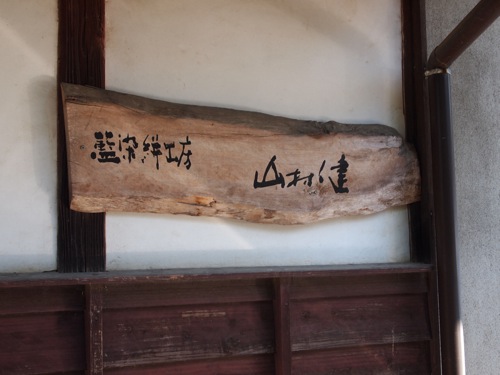 藍染絣工房 山村健